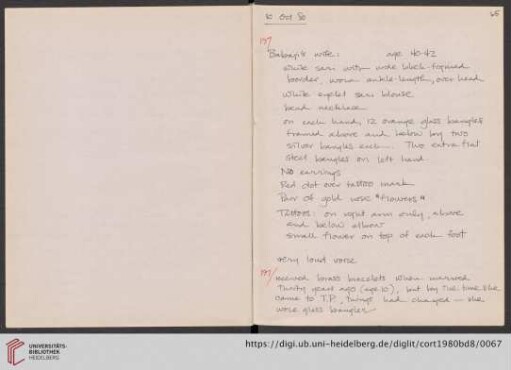 10 Oct 80
65
M
Babaji's wife: age 40-42
white sari with wide black-figured
boarder, worn ankle-length, over head
white eyelet sari blouse
bead necklace
on each hand, 12 orange glass bangles
framed above and below by two
silver bangles each. Two extra flat
steel bangles on left hand.
No earrings
Red dot over tattoo mark
Pair of gold nose "flowers"
Tattoos: on right arm only, above
and below elbow
small flower on top of each foot
very loud voice
M/ received brass bracelets when married
thirty years ago (age 10), but by the time she
came to J.P., things had changed — she
wore glass bangles
UNIVERSITÄTS-
BIBLIOTHEK
HEIDELBERG
https://digi.ub.uni-heidelberg.de/diglit/cort1980bd8/0067